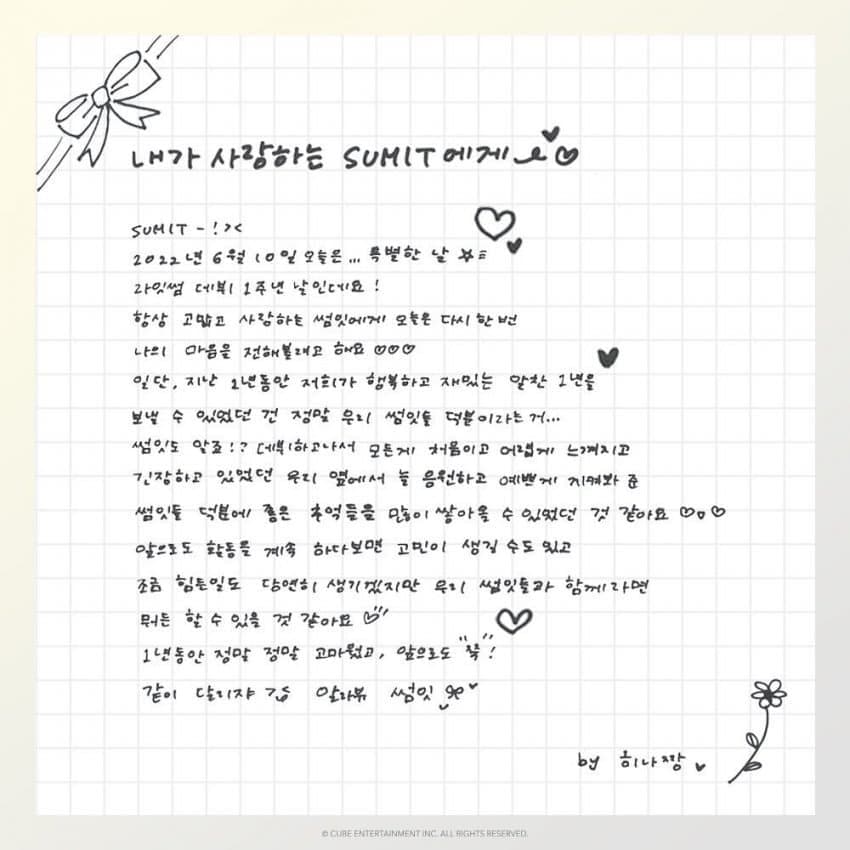 내가 사랑하는 SUMIT에게
SUMIT - ! ><
2022년 6월 10일 오늘은... 특별한 날
라잇썸 데뷔 1주년 날인데요!
항상 고맙고 사랑하는 썸잇에게 오늘은 다시 한 번
나의 마음을 전해볼래고 해요 ♡♡♡
일단, 지난 1년동안 저희가 행복하고 재밌는 알찬 1년을
보낼 수 있었던 건 정말 우리 썸잇들 덕분이라는거...
썸잇도 알죠!? 데뷔하고나서 모든게 처음이고 어렵게 느껴지고
긴장하고 있었던 우리 옆에서 늘 응원하고 예쁘게 지켜봐 준
썸잇들 덕분에 좋은 추억들을 많이 쌓아올 수 있었던 것 같아요 ♡♡♡
앞으로도 활동을 계속 하다보면 고민이 생길 수도 있고
조금 힘든일도 당연히 생기겠지만 우리 썸잇들과 함께라면
뭐든 할 수 있을 것 같아요
1년동안 정말 정말 고마웠고, 앞으로도 "쭉"!
같이 달리쟈 알라뷰 썸잇
by 히나짱
© CUBE ENTERTAINMENT INC. ALL RIGHTS RESERVED.